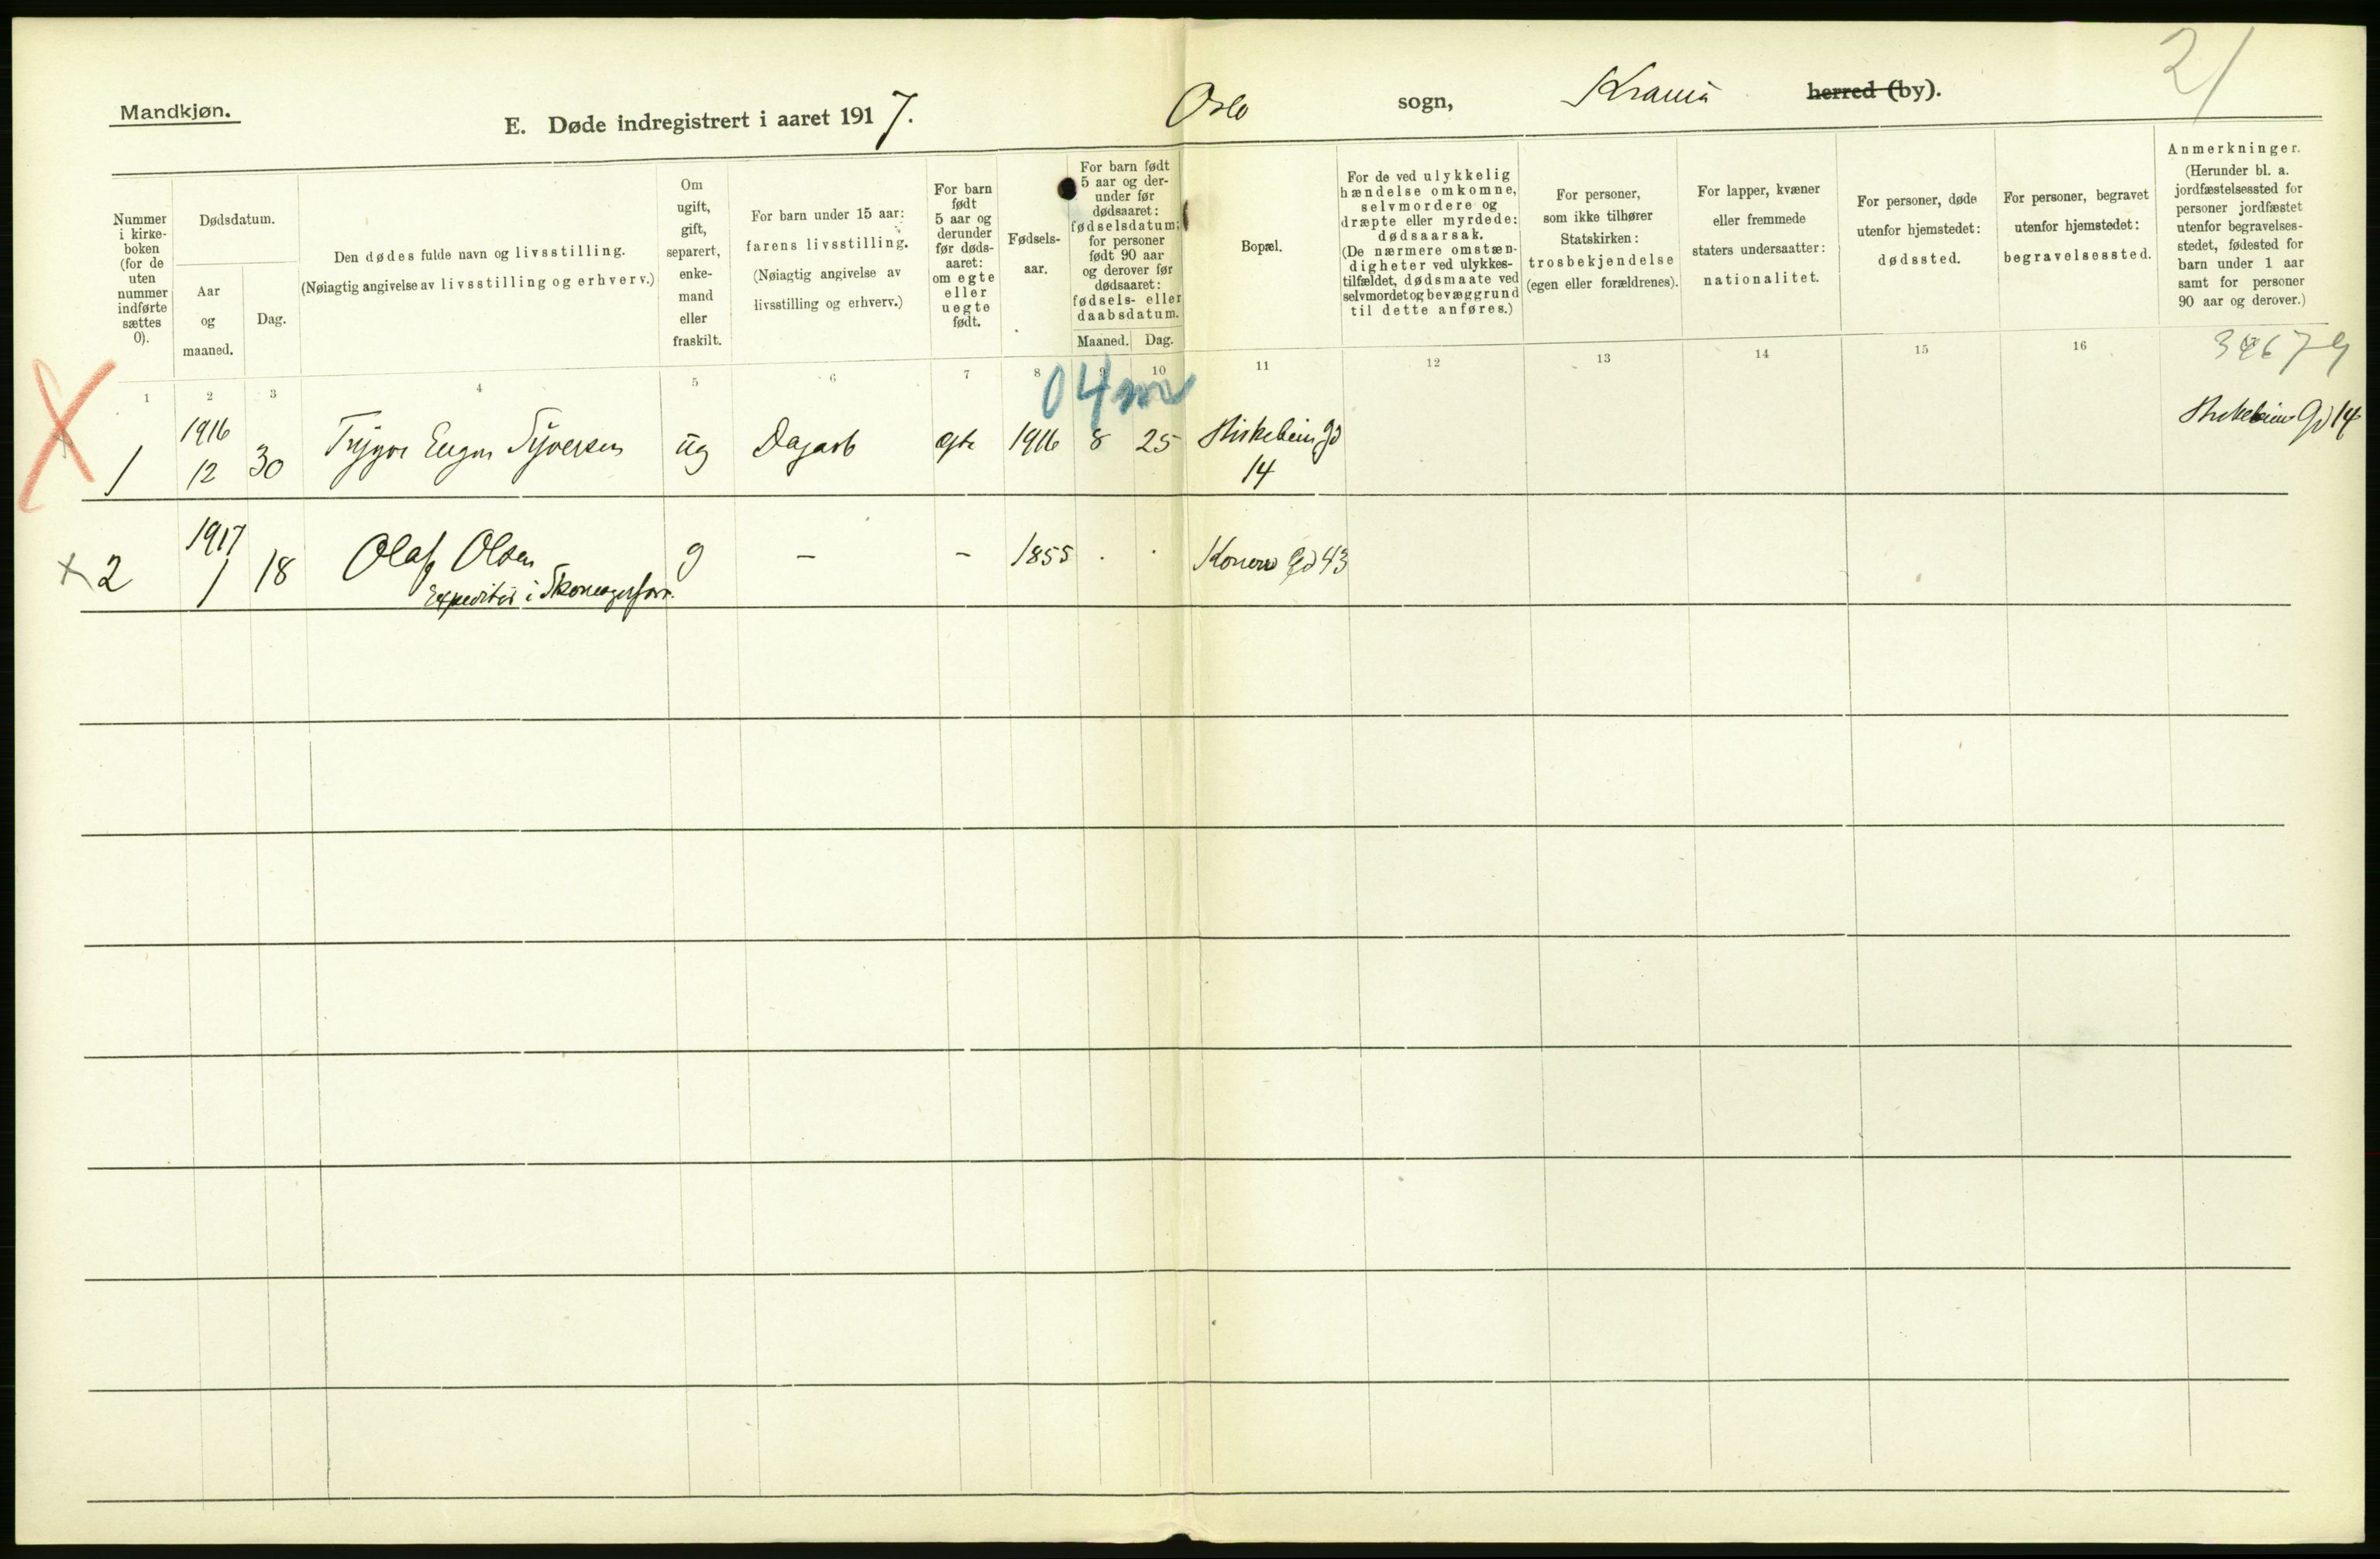 Mandkjøn.
E. Døde indregistrert i aaret 1917.
Oslo sogn,
Krania herred (by).
21
Nummer
i kirke-
boken
(for de
uten
nummer
indførte
sættes
0).
Dødsdatum.
Aar
og
maaned.
Dag.
Den dødes fulde navn og livsstilling.
(Nøiagtig angivelse av livsstilling og erhverv.)
Om
ugift,
gift,
separert,
enke-
mand
eller
fraskilt.
For barn under 15 aar:
farens livsstilling.
(Nøiagtig angivelse av
livsstilling og erhverv.)
For barn
født
5 aar og
derunder
før døds-
aaret:
om egte
eller
uegte
født.
Fødsels-
aar.
For barn født
5 aar og der-
under før
dødsaaret:
fødselsdatum;
for personer
født 90 aar
og derover før
dødsaaret:
fødsels- eller
daabsdatum.
Maaned. Dag.
Bopæl.
For de ved ulykkelig
hændelse omkomne,
selvmordere og
dræpte eller myrdede:
dødsaarsak.
(De nærmere omstæn-
digheter ved ulykkes-
tilfældet, dødsmaate ved
selvmordet og bevæggrund
til dette anføres.)
For personer,
som ikke tilhører
Statskirken:
trosbekjendelse
(egen eller forældrenes).
For lapper, kvæner
eller fremmede
staters undersaatter:
nationalitet.
For personer, døde
utenfor hjemstedet:
dødssted.
For personer, begravet
utenfor hjemstedet:
begravelsessted.
Anmerkninger.
(Herunder bl. a.
jordfæstelsessted for
personer jordfæstet
utenfor begravelses-
stedet, fødested for
barn under 1 aar
samt for personer
90 aar og derover.)
1 2 3 4 5 6 7 8 9 10 11 12 13 14 15 16
04
1 1916 12 30 Trygve Eugen Syversen ug Dagarb egte 1916 8 25
14
Gd 14
2 1917 1 18 Olaf Olsen g – – 1855 . . Konows Gd 43
Expeditør i